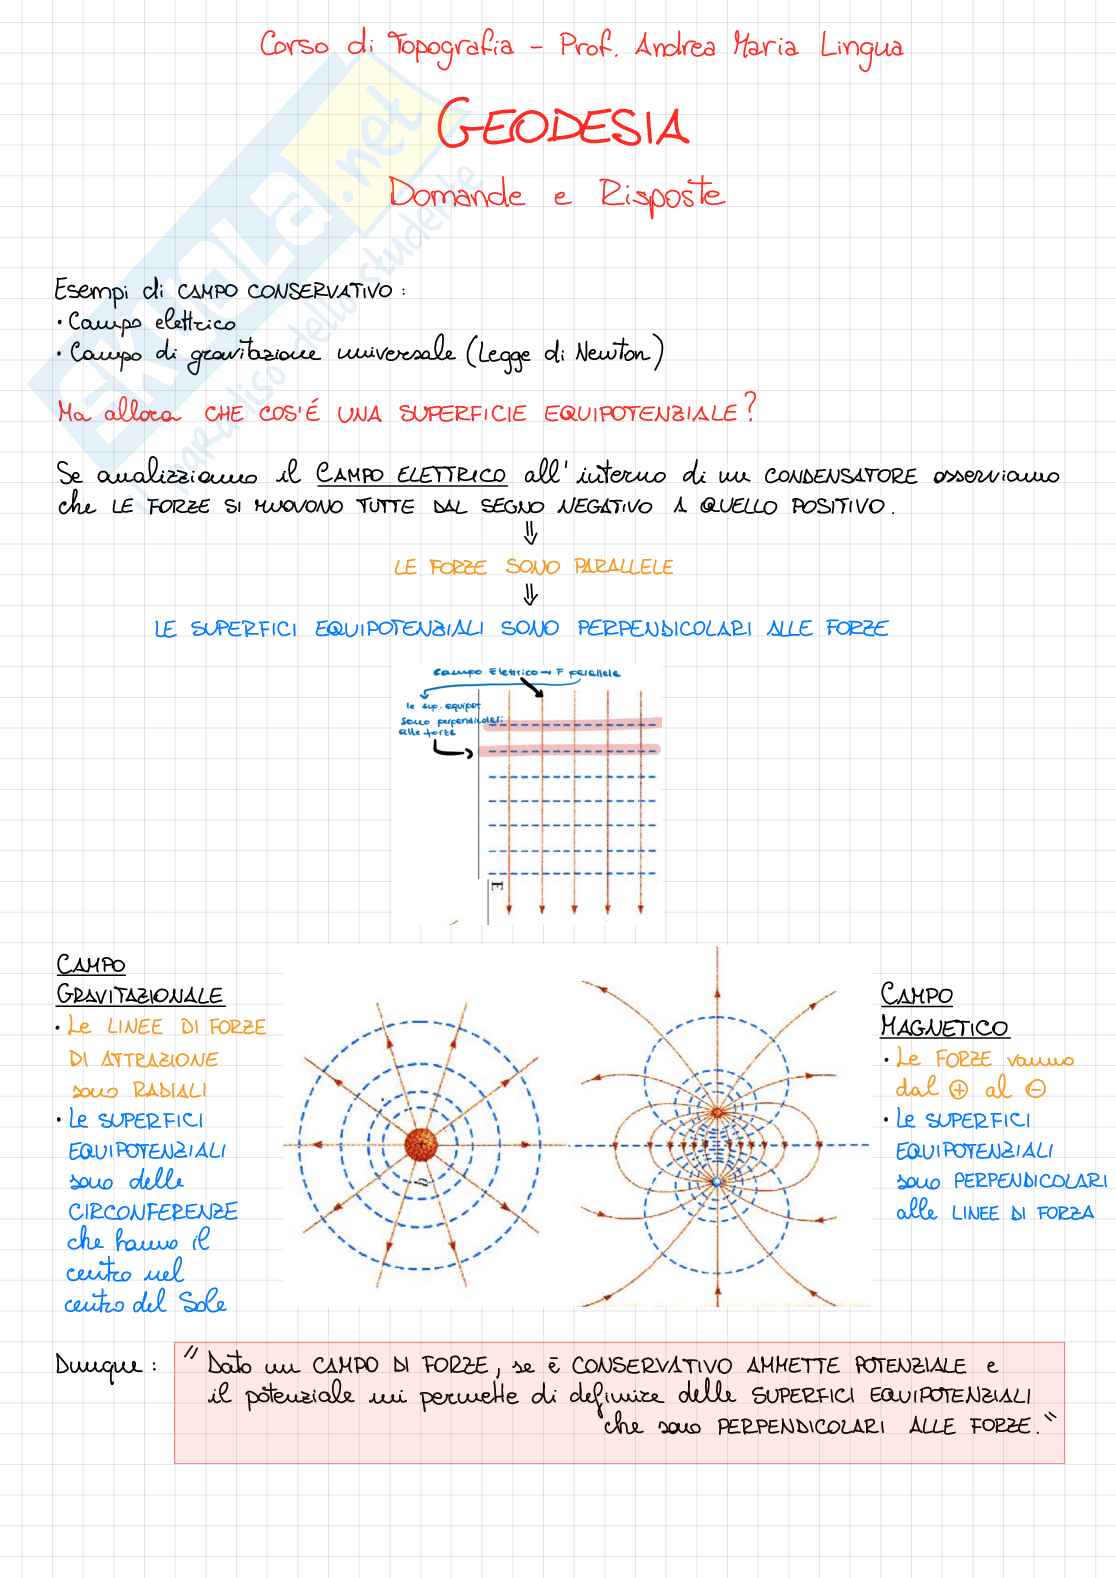 Corso di Topografia - Prof. Andrea Maria Lingua
GEODESIA
Domande e Risposte
SKUOLA.net
il paradiso dello studente
Esempi di CAMPO CONSERVATIVO :
• Campo elettrico
• Campo di gravitazione universale (Legge di Newton)
Ma allora CHE COS'É UNA SUPERFICIE EQUIPOTENZIALE?
Se analizziamo il CAMPO ELETTRICO all'interno di un CONDENSATORE osserviamo
che LE FORZE SI MUOVONO TUTTE DAL SEGNO NEGATIVO A QUELLO POSITIVO.
⇓
LE FORZE SONO PARALLELE
⇓
LE SUPERFICI EQUIPOTENZIALI SONO PERPENDICOLARI ALLE FORZE
Campo Elettrico → F parallele
le sup. equipot
sono perpendicolari
alle forze
E
CAMPO
GRAVITAZIONALE
• Le LINEE DI FORZE
DI ATTRAZIONE
sono RADIALI
• Le SUPERFICI
EQUIPOTENZIALI
sono delle
CIRCONFERENZE
che hanno il
centro nel
centro del Sole
CAMPO
MAGNETICO
• Le FORZE vanno
dal ⊕ al ⊖
• Le SUPERFICI
EQUIPOTENZIALI
sono PERPENDICOLARI
alle LINEE DI FORZA
Dunque : " Dato un CAMPO DI FORZE, se è CONSERVATIVO AMMETTE POTENZIALE e
il potenziale mi permette di definire delle SUPERFICI EQUIPOTENZIALI
che sono PERPENDICOLARI ALLE FORZE."